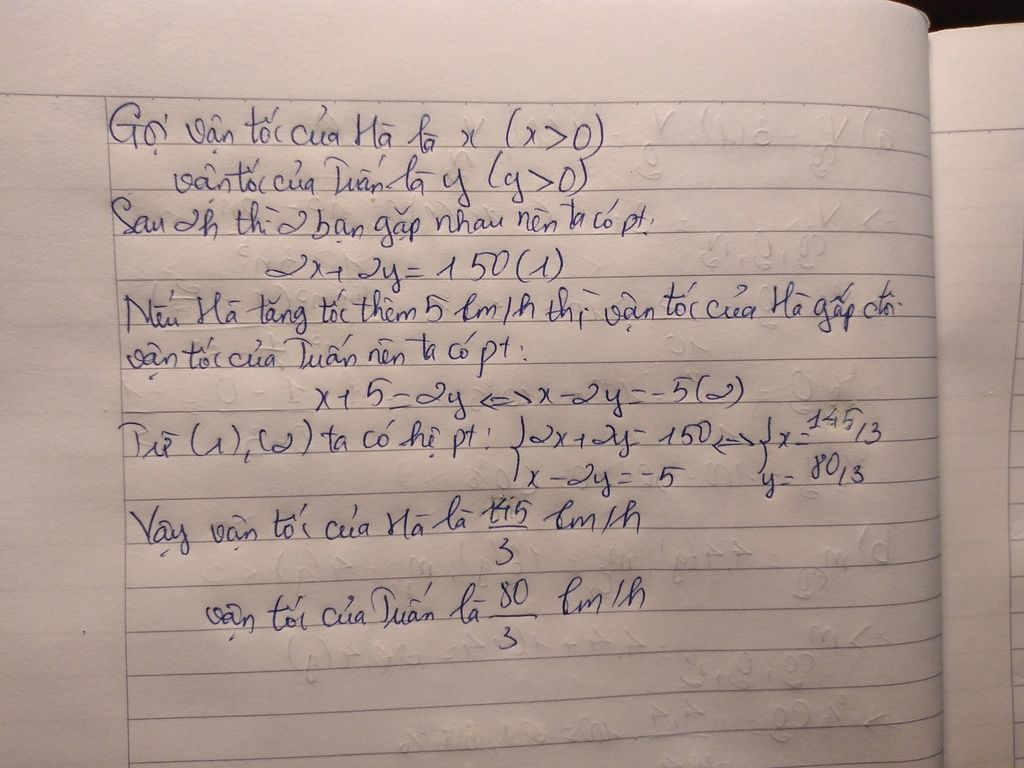 Gọi vận tốc của Hà là x (x>0)
vận tốc của Tuấn là y (y>0)
Sau 2h thì 2 bạn gặp nhau nên ta có pt:
2x+2y=150(1)
Nếu Hà tăng tốc thêm 5 km/h thì vận tốc của Hà gấp đôi
vận tốc của Tuấn nên ta có pt:
x+5=2y <=> x-2y=-5(2)
Từ (1),(2) ta có hệ pt: {2x+2y=150 <=> {x=145/3
x-2y=-5 y=80/3
Vậy vận tốc của Hà là 145/3 km/h
vận tốc của Tuấn là 80/3 km/h